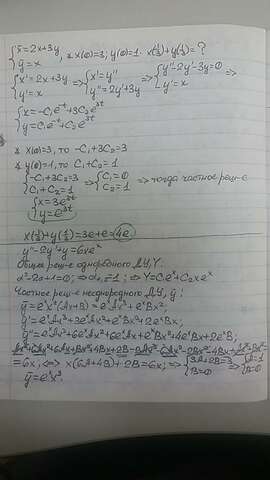 {ẋ = 2x+3y
{ẏ = x , з x(0)=3; y(0)=1. x(1/3)+y(1/3)=?
{x'=2x+3y {y'=x => {x'=y'' {y''=2y'+3y => {y''-2y'-3y=0 {y'=x =>
{x=-C₁e^-t+3C₂e^3t
{y=C₁e^-t+C₂e^3t
з x(0)=3, то -C₁+3C₂=3
з y(0)=1, то C₁+C₂=1
{-C₁+3C₂=3 {C₁+C₂=1 => {C₁=0 {C₂=1 => тогда частное реш-е
{x=3e^3t
{y=e^3t
x(1/3)+y(1/3)=3e+e=4e
y''-2y'+y=6xe^x
Общее реш-е однородного ДУ, Y.
α²-2α+1=0; => α₁,₂=1; => Y=C₁e^x+C₂xe^x
Частное реш-е неоднородного ДУ, ȳ.
ȳ=e^x x²(Ax+B)=e^x Ax³+e^x Bx²;
ȳ'=e^x Ax³+3e^x Ax²+e^x Bx²+2e^x Bx;
ȳ''=e^x Ax³+6e^x Ax²+6e^x Ax+e^x Bx²+4e^x Bx+2e^x B;
Ax³+6Ax²+6Ax+Bx²+4Bx+2B-2Ax³-6Ax²-2Bx²-4Bx+Ax³+Bx²=
=6x; <=> x(6A+4B)+2B=6x; => {3A+2B=3 {B=0 => {A=1 {B=0
ȳ=e^x x³.